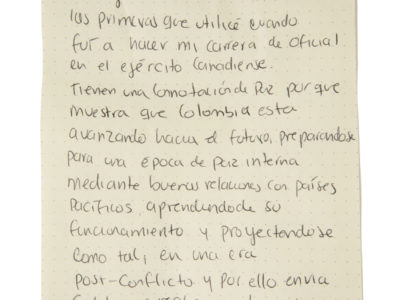 las primeras que utilicé cuando
fuí a hacer mi carrera de oficial
en el ejército Canadiense.
Tienen una connotación de Paz porque
muestra que Colombia esta
avanzando hacia el futuro, preparandose
para una época de Paz interna
mediante buenas relaciones con países
Pacíficos aprendiendo de su
funcionamiento y proyectandose
como tal, en una era
Post-Conflicto y por ello envia